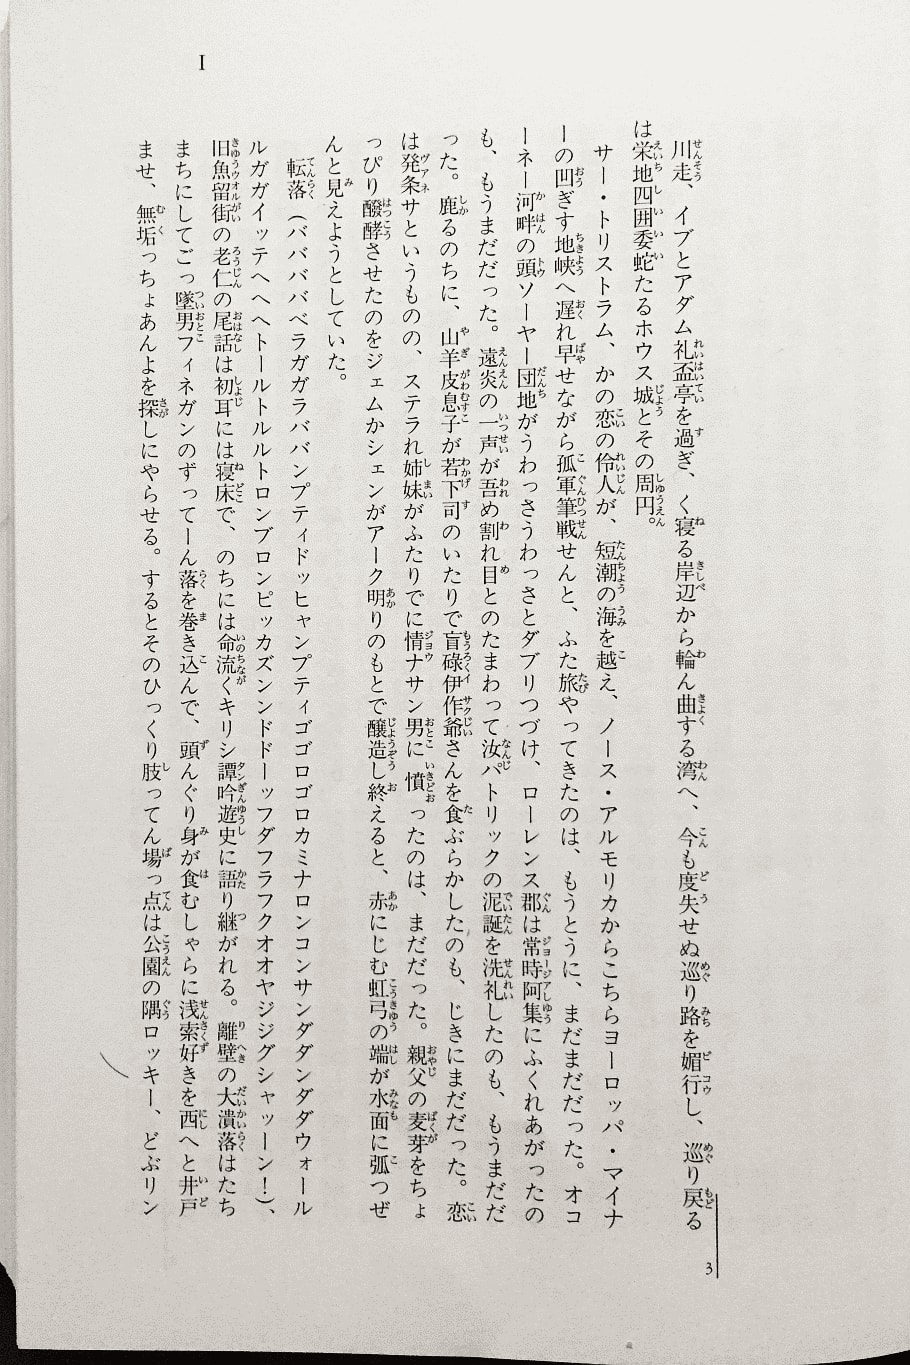 I
川走、イブとアダム礼盃亭を過ぎ、く寝る岸辺から輪ん曲する湾へ、今も度失せぬ巡り路を媚行し、巡り戻る
は栄地四囲委蛇たるホウス城とその周円。
サー・トリストラム、かの恋の伶人が、短潮の海を越え、ノース・アルモリカからこちらヨーロッパ・マイナ
ーの凹ぎす地峡へ遅れ早せながら孤軍筆戦せんと、ふた旅やってきたのは、もうとうに、まだまだだった。オコ
ーネー河畔の頭ソーヤー団地がうわっさうわっさとダブリつづけ、ローレンス郡は常時阿集にふくれあがったの
も、もうまだだった。遠炎の一声が吾め割れ目とのたまわって汝パトリックの泥誕を洗礼したのも、もうまだだ
った。鹿るのちに、山羊皮息子が若下司のいたりで盲碌伊作爺さんを食ぶらかしたのも、じきにまだだった。恋
は発条サというものの、ステラれ姉妹がふたりでに情ナサン男に憤ったのは、まだだった。親父の麦芽をちょ
っぴり醱酵させたのをジェムかシェンがアーク明りのもとで醸造し終えると、赤にじむ虹弓の端が水面に弧つぜ
んと見えようとしていた。
転落（ババババベラガガラババンプティドッヒャンプティゴゴロゴロカミナロンコンサンダダンダダウォール
ルガガイッテヘヘヘトールトルルトロンブロンピッカズンンドドーッフダフラフクオオヤジジグシャッーン！）、
旧魚留街の老仁の尾話は初耳には寝床で、のちには命流くキリシ譚吟遊史に語り継がれる。離壁の大潰落はたち
まちにしてごっ墜男フィネガンのずってーん落を巻き込んで、頭んぐり身が食むしゃらに浅索好きを西へと井戸
ませ、無垢っちょあんよを探しにやらせる。するとそのひっくり肢ってん場っ点は公園の隅ロッキー、どぶリン
3